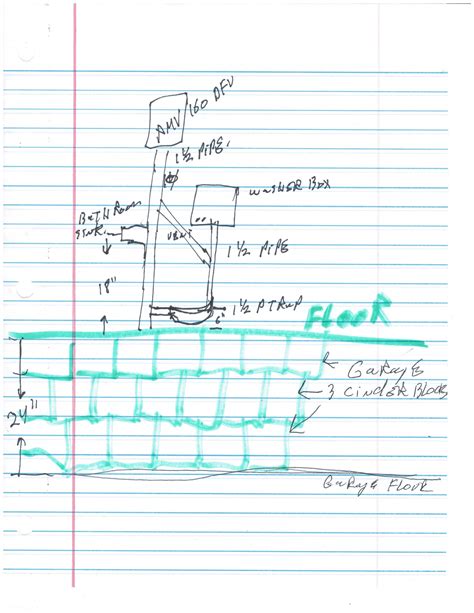 AMV
160 DFU
1½ PIPE.
WASHER BOX
BATHROOM
SINK
VENT
1½ PIPE
18"
1½ P TRAP
6"
FLOOR
GARAGE
3 CINDER BLOCK
24"
GARAGE FLOOR